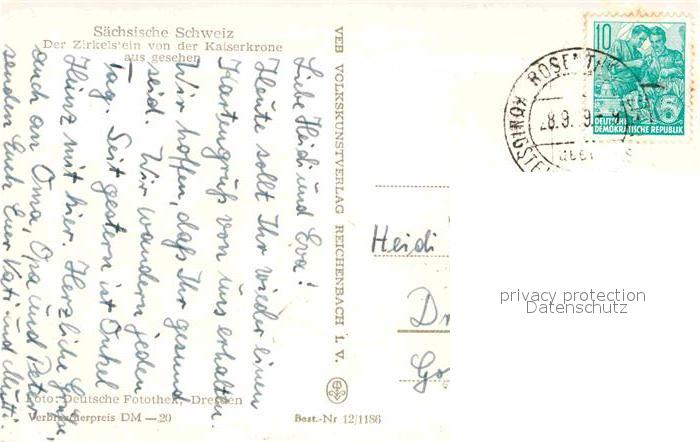 Sächsische Schweiz
Der Zirkelstein von der Kaiserkrone
aus gesehen
Liebe Heidi und Eva!
Heute sollt Ihr wieder einen
Kartengruß von uns erhalten.
Wir hoffen, daß Ihr gesund
seid. Wir wandern jeden
Tag. Seit gestern ist Onkel
Heinz mit hier. Herzliche Grüße,
auch an Oma, Opa und Peter
senden Euch Euer Vati und Mutti.
Foto: Deutsche Fotothek, Dresden
Verbraucherpreis DM —.20
Best.-Nr 12/1186
VEB VOLKSKUNSTVERLAG REICHENBACH I. V.
10
DEUTSCHE
DEMOKRATISCHE REPUBLIK
ROSENTH
KÖNIGSTE
28.9.
Heidi
Dr
Go
privacy protection
Datenschutz